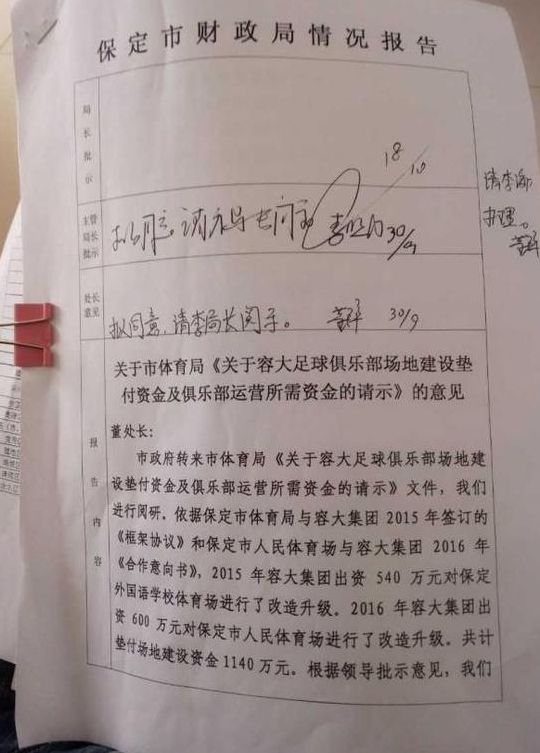 保定市财政局情况报告
局长批示
18/10
主管局长批示
30/9
请李
办理。
处长意见
拟同意，请李局长阅示。 30/9
关于市体育局《关于容大足球俱乐部场地建设垫
付资金及俱乐部运营所需资金的请示》的意见
报告内容
董处长：
市政府转来市体育局《关于容大足球俱乐部场地建
设垫付资金及俱乐部运营所需资金的请示》文件，我们
进行阅研。依据保定市体育局与容大集团 2015 年签订的
《框架协议》和保定市人民体育场与容大集团 2016 年
《合作意向书》，2015 年容大集团出资 540 万元对保定
外国语学校体育场进行了改造升级。2016 年容大集团出
资 600 万元对保定市人民体育场进行了改造升级。共计
垫付场地建设资金 1140 万元。根据领导批示意见，我们